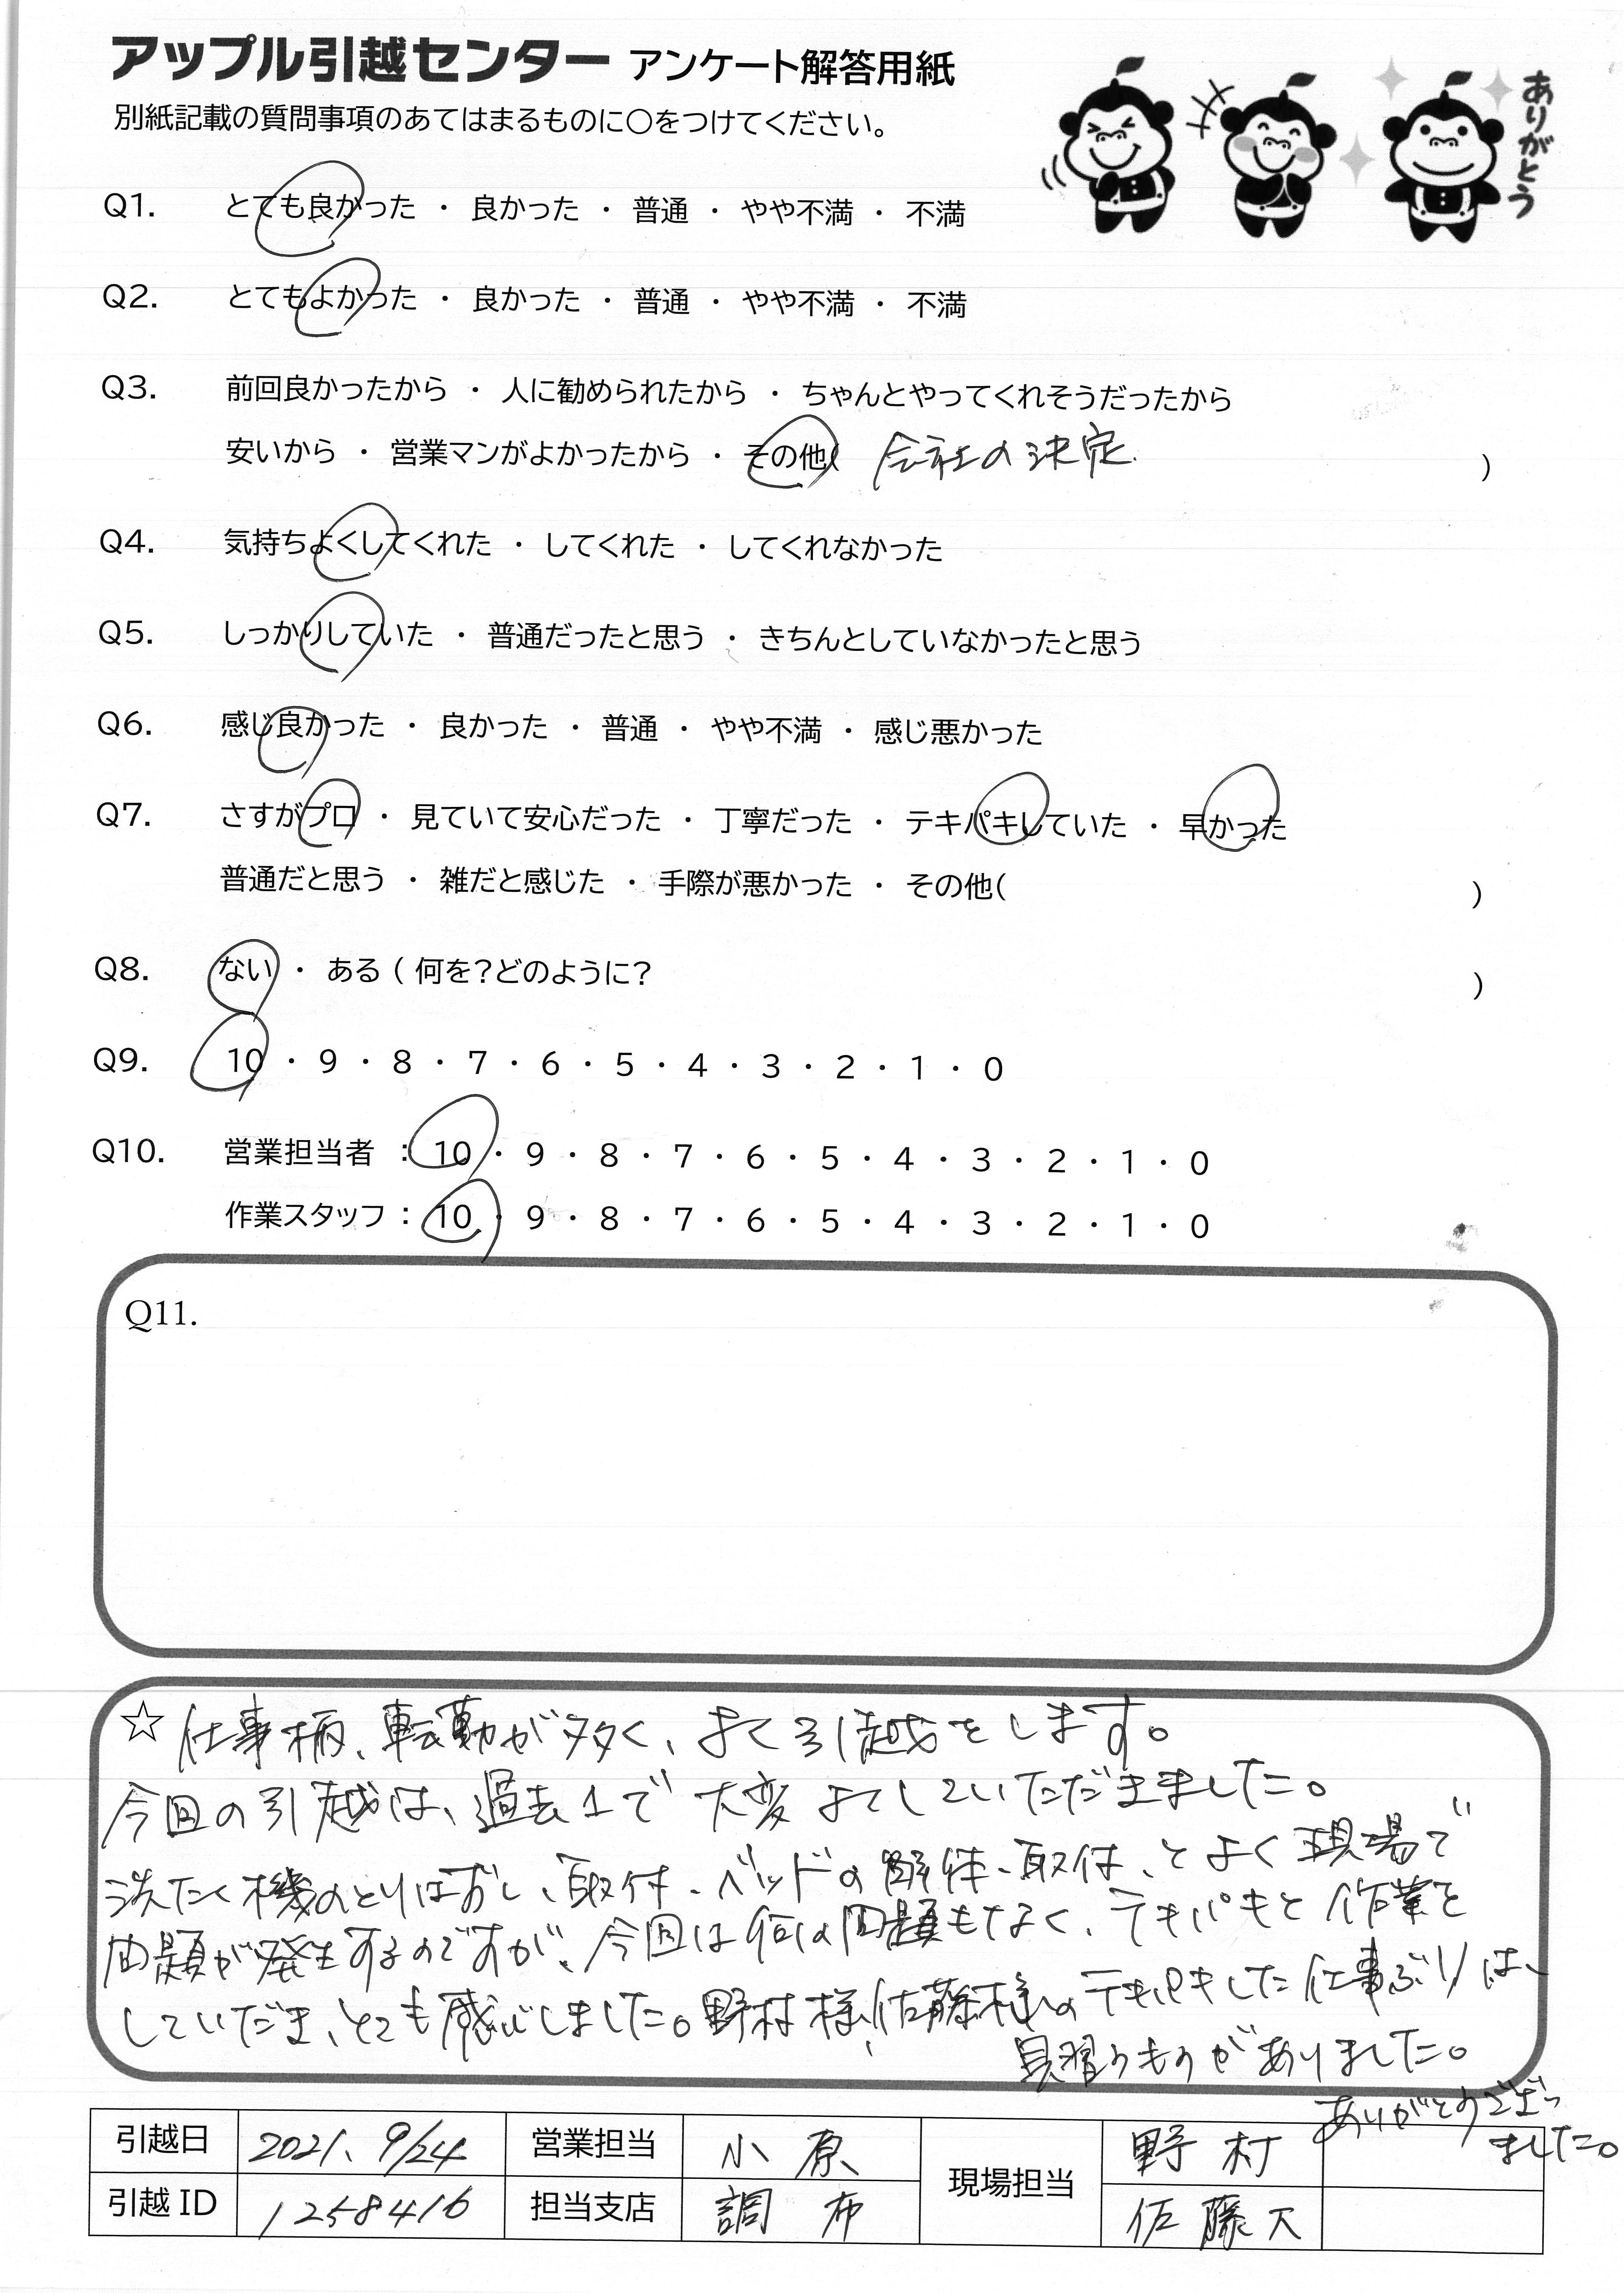 アップル引越センター アンケート解答用紙
別紙記載の質問事項のあてはまるものに○をつけてください。
ありがとう
Q1. とても良かった ・ 良かった ・ 普通 ・ やや不満 ・ 不満
Q2. とてもよかった ・ 良かった ・ 普通 ・ やや不満 ・ 不満
Q3. 前回良かったから ・ 人に勧められたから ・ ちゃんとやってくれそうだったから
安いから ・ 営業マンがよかったから ・ その他( 会社の決定. )
Q4. 気持ちよくしてくれた ・ してくれた ・ してくれなかった
Q5. しっかりしていた ・ 普通だったと思う ・ きちんとしていなかったと思う
Q6. 感じ良かった ・ 良かった ・ 普通 ・ やや不満 ・ 感じ悪かった
Q7. さすがプロ ・ 見ていて安心だった ・ 丁寧だった ・ テキパキしていた ・ 早かった
普通だと思う ・ 雑だと感じた ・ 手際が悪かった ・ その他( )
Q8. ない ・ ある ( 何を?どのように? )
Q9. 10 ・ 9 ・ 8 ・ 7 ・ 6 ・ 5 ・ 4 ・ 3 ・ 2 ・ 1 ・ 0
Q10. 営業担当者 : 10 ・ 9 ・ 8 ・ 7 ・ 6 ・ 5 ・ 4 ・ 3 ・ 2 ・ 1 ・ 0
作業スタッフ : 10 ・ 9 ・ 8 ・ 7 ・ 6 ・ 5 ・ 4 ・ 3 ・ 2 ・ 1 ・ 0
Q11.
☆ 仕事柄、転勤が多く、よく引越をします。
今回の引越は、過去1で大変よくしていただきました。
洗たく機のとりはずし、取付、ベッドの解体、取付、とよく現場で
問題が発生するのですが、今回は何の問題もなく、テキパキと作業を
していだき、とても感心しました。野村様、佐藤様のテキパキした仕事ぶりは、
見習うものがありました。
ありがとうござい
ました。
引越日 2021. 9/24 営業担当 小原 現場担当 野村
引越 ID 1258416 担当支店 調布 佐藤大